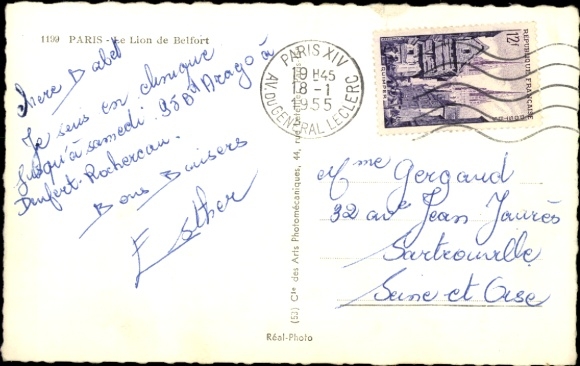 1199 PARIS - Le Lion de Belfort
Chère Babet
Je suis en clinique
jusqu'à samedi. 95 Bd Arago à
Denfert-Rochereau.
Bons Baisers
Esther
PARIS XIV
19 H45
18 - 1
1955
AV. DU GENERAL LECLERC
12f
REPUBLIQUE FRANÇAISE
QUIMPER
Mme Gergaud
32 av Jean Jaurès
Sartrouville
Seine-et-Oise
(53) Cie des Arts Photomécaniques, 44, rue
Réal-Photo